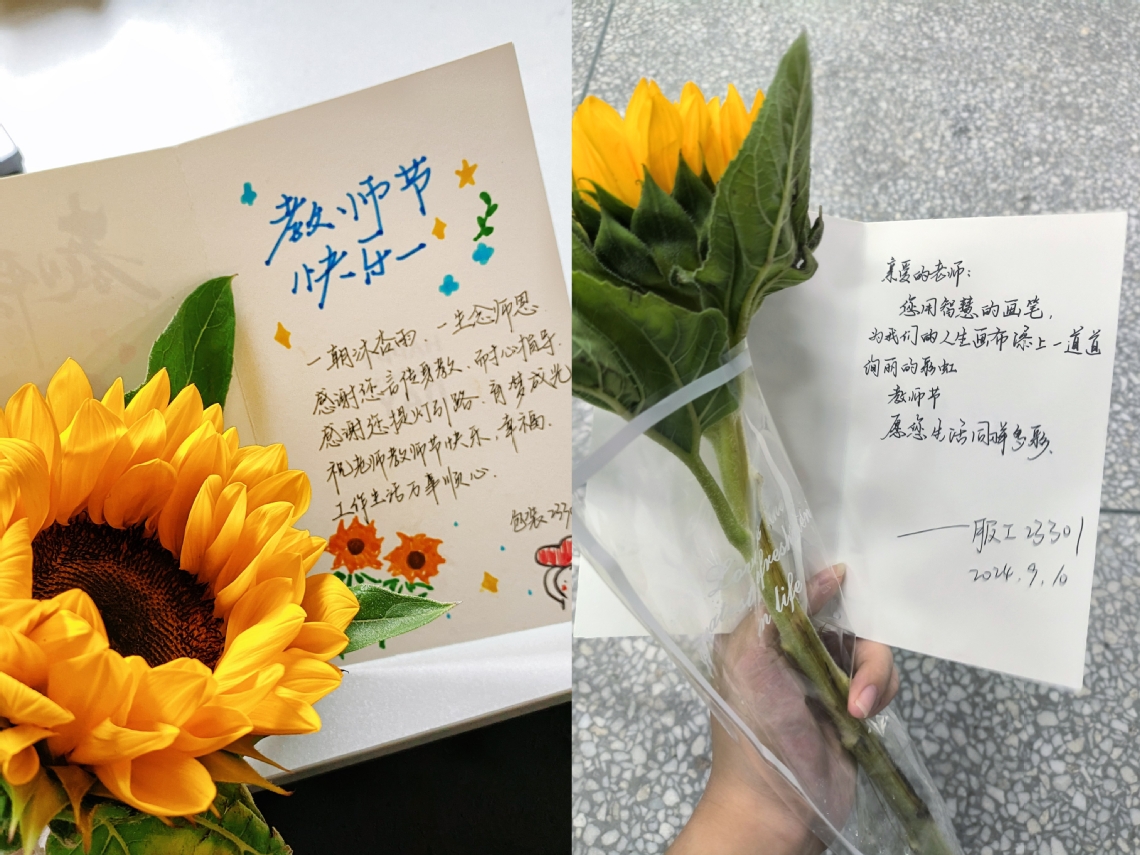 教师节
快乐
一朝沐杏雨，一生念师恩
感谢您言传身教、而才心指导.
感谢您提灯引路、育梦成光
祝老师教师节快乐，幸福.
工作生活万事顺心.
包装2330
亲爱的老师：
您用智慧的画笔，
为我们的人生画布添上一道道
绚丽的彩虹
教师节
愿您生活同样多彩.
——服工23301
2024.9.10
fresh
in life